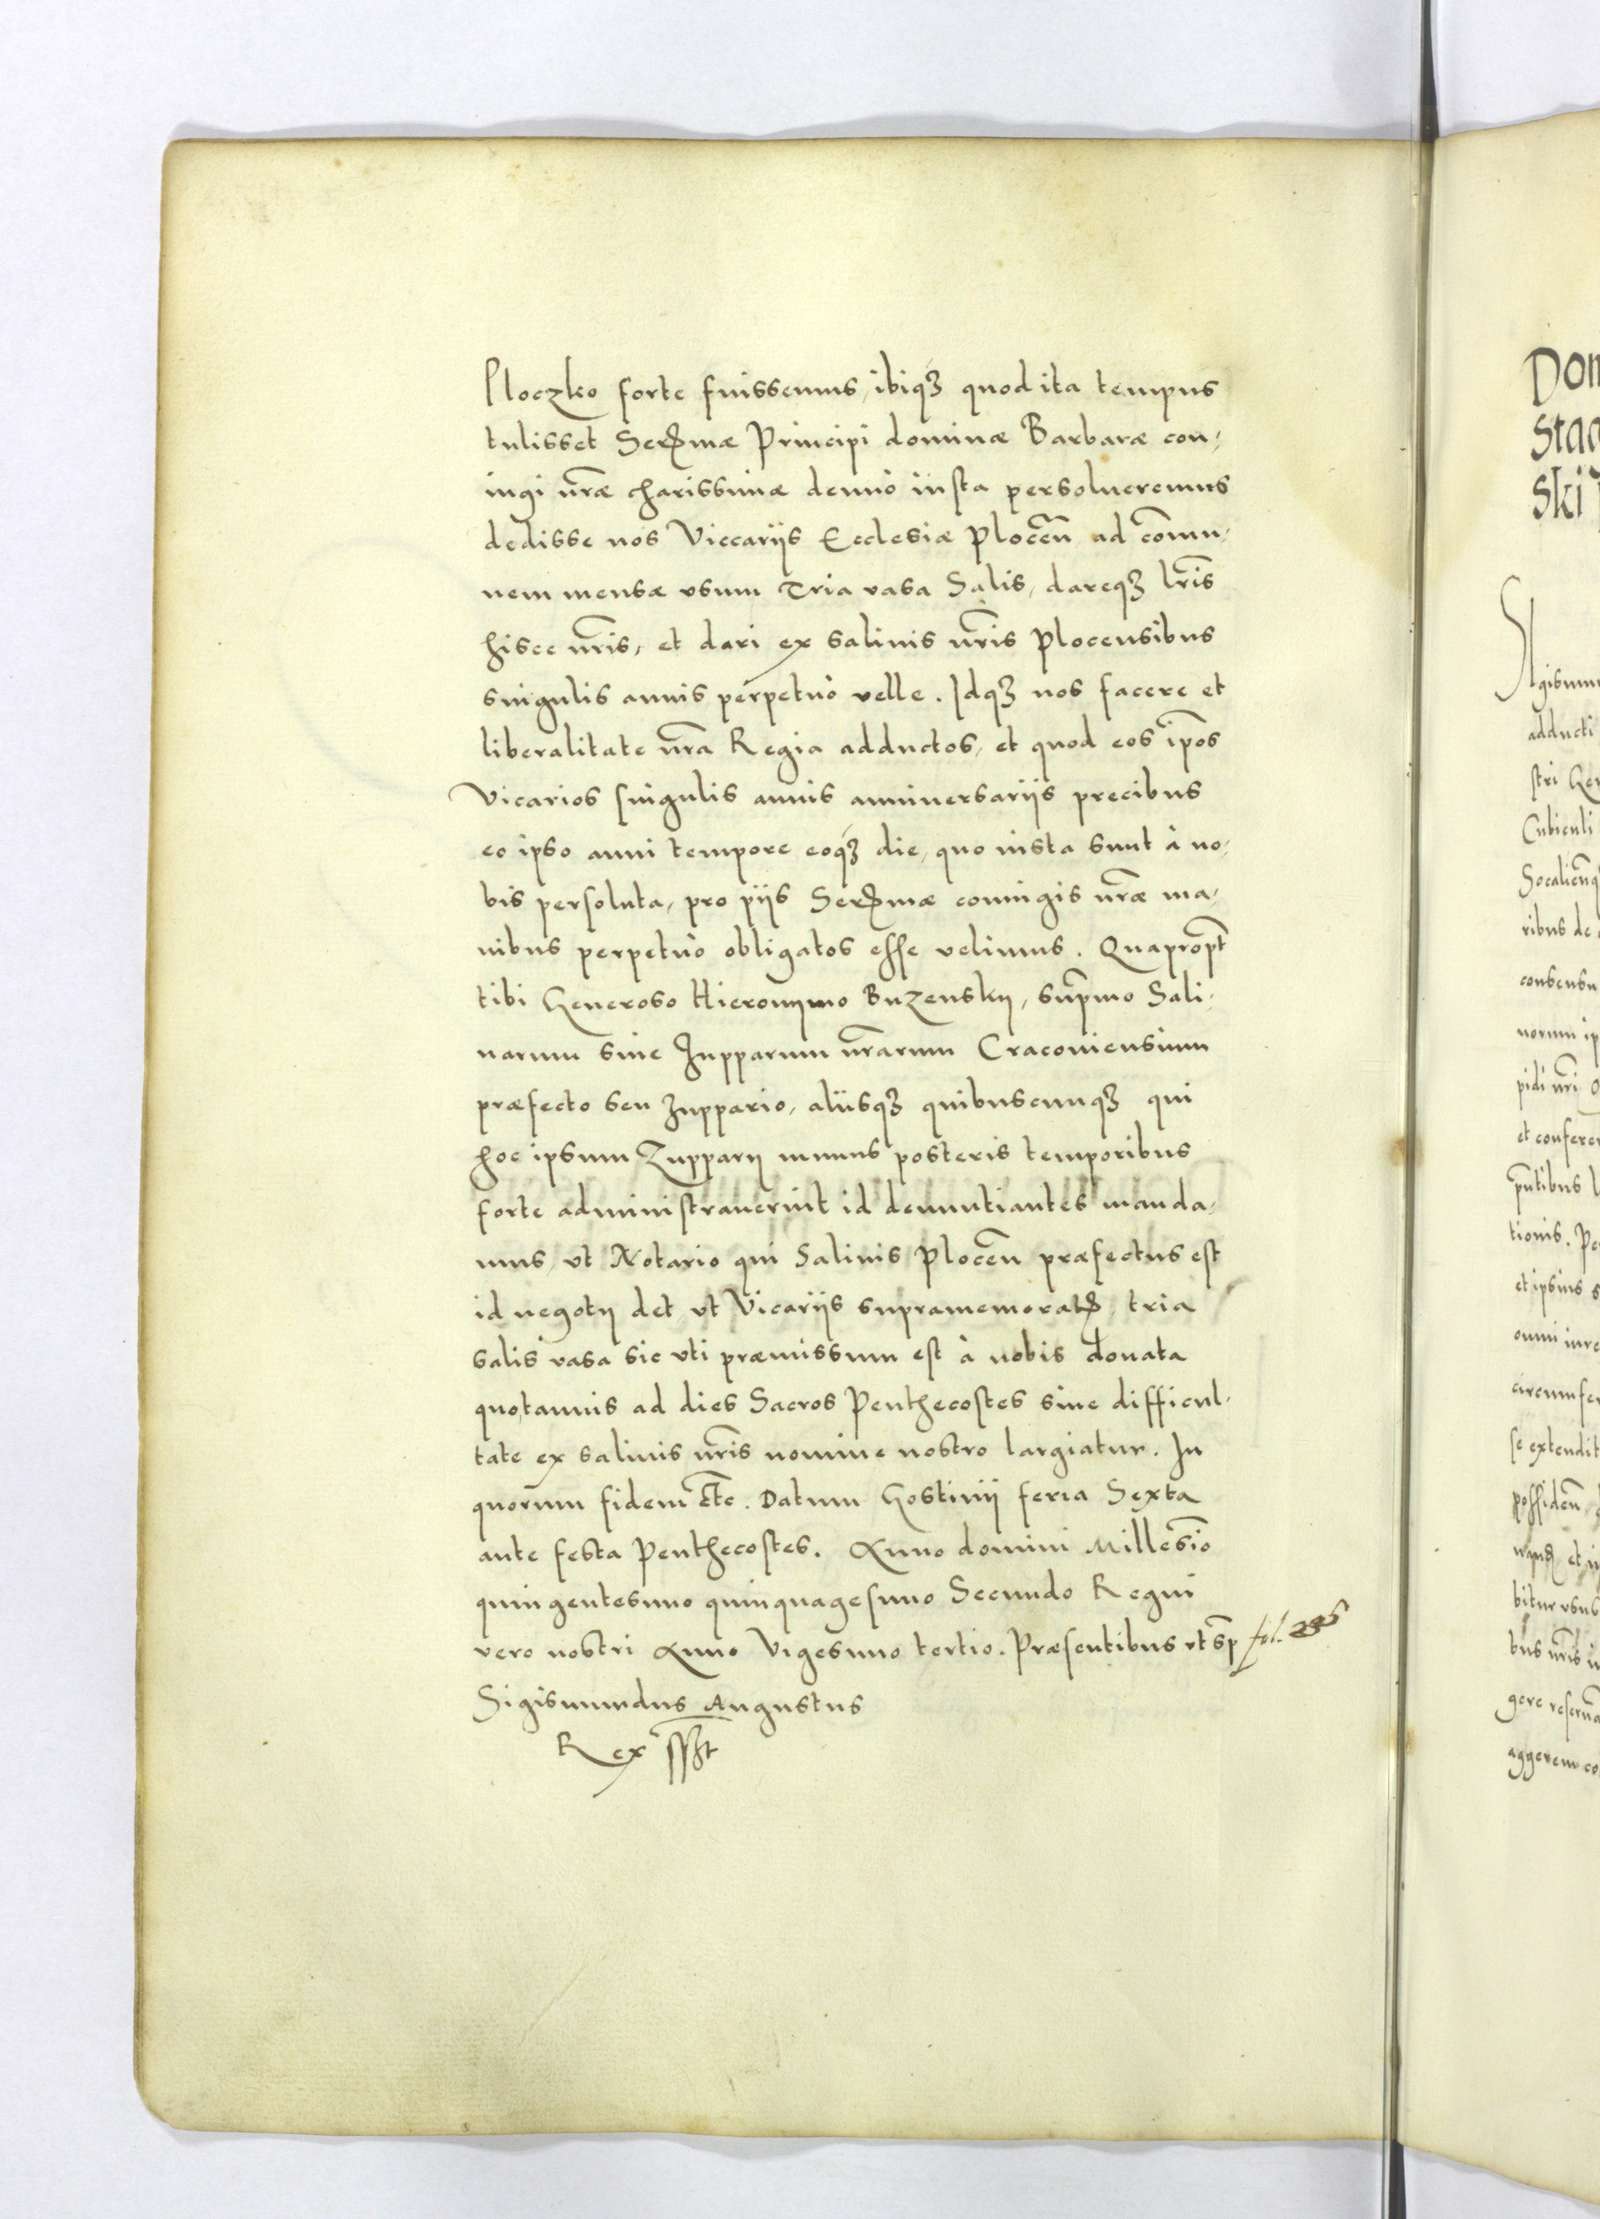 Ploczko forte fuissemus, ibiqꝫ quod ita tempus
tulisset Serꝰmæ Principi dominæ Barbaræ con-
iugi nr̃æ charissimæ denuò iusta persolueremus
dedisse nos Viccariis Ecclesiæ Plocen̄ ad com̄u-
nem mensæ vsum Tria vasa Salis, dareqꝫ lr̃is
hisce nr̃is, et dari ex salinis nr̃is Plocensibus
singulis annis perpetuò velle. Idqꝫ nos facere et
liberalitate nr̃a Regia adductos, et quod eos ip̃os
Vicarios singulis annis anniuersariis precibus
eo ipso anni tempore eoqꝫ die, quo iusta sunt à no-
bis persoluta, pro piis Serꝰmæ coniugis nr̃æ ma-
nibus perpetuò obligatos esse velimus. Quapropt̄
tibi Generoso Hieronymo Buzensky, sup̄mo Sali-
narum siue Zupparum nr̃arum Cracouiensium
præfecto seu Zuppario, aliisqꝫ quibuscunqꝫ qui
hoc ipsum Zupparij munus posteris temporibus
forte administrauerint id denuntiantes manda-
mus, vt Notario qui Salinis Plocen̄ præfectus est
id negotij det vt Vicariis supramemoratꝭ, tria
salis vasa sic vti præmissum est à nobis donata
quotannis ad dies Sacros Penthecostes sine difficul-
tate ex salinis nr̃is nomine nostro largiatur. In
quorum fidem etc̄. Datum Gostinij feria Sexta
ante festa Penthecostes. Anno domini Millesīo
quingentesimo quinquagesimo Secundo Regni
vero nostri Anno Vigesimo tertio. Præsentibus vt sp̄ fol.
Sigismundus Augustus
Rex
Dom
Stan
Ski
Sigismun
adducti
stri Gen
Cubiculi
Socalien̄
ribus de
consensu
norum ip
pidi nr̃i
et confere
pn̄tibus l
tionis.
et ipsius s
omni iure
circumfe
se extendit
possiden̄
et
bitur vsu
bus nr̃is
gere
aggerem co